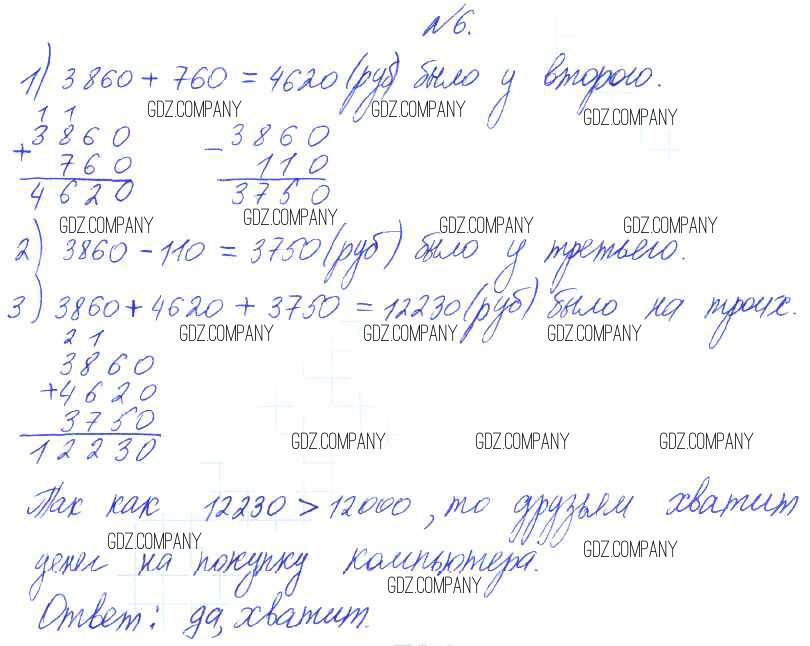 №6.
1) 3860 + 760 = 4620 (руб) было у второго.
GDZ.COMPANY GDZ.COMPANY GDZ.COMPANY
1 1
+ 3860 - 3860
760 110
4620 3750
GDZ.COMPANY GDZ.COMPANY GDZ.COMPANY GDZ.COMPANY
2) 3860 - 110 = 3750 (руб) было у третьего.
3) 3860 + 4620 + 3750 = 12230 (руб) было на троих.
GDZ.COMPANY GDZ.COMPANY GDZ.COMPANY
2 1
3860
+ 4620
3750
12230
GDZ.COMPANY GDZ.COMPANY GDZ.COMPANY
Так как 12230 > 12000, то друзьям хватит
GDZ.COMPANY GDZ.COMPANY
денег на покупку компьютера.
GDZ.COMPANY
Ответ: да, хватит.